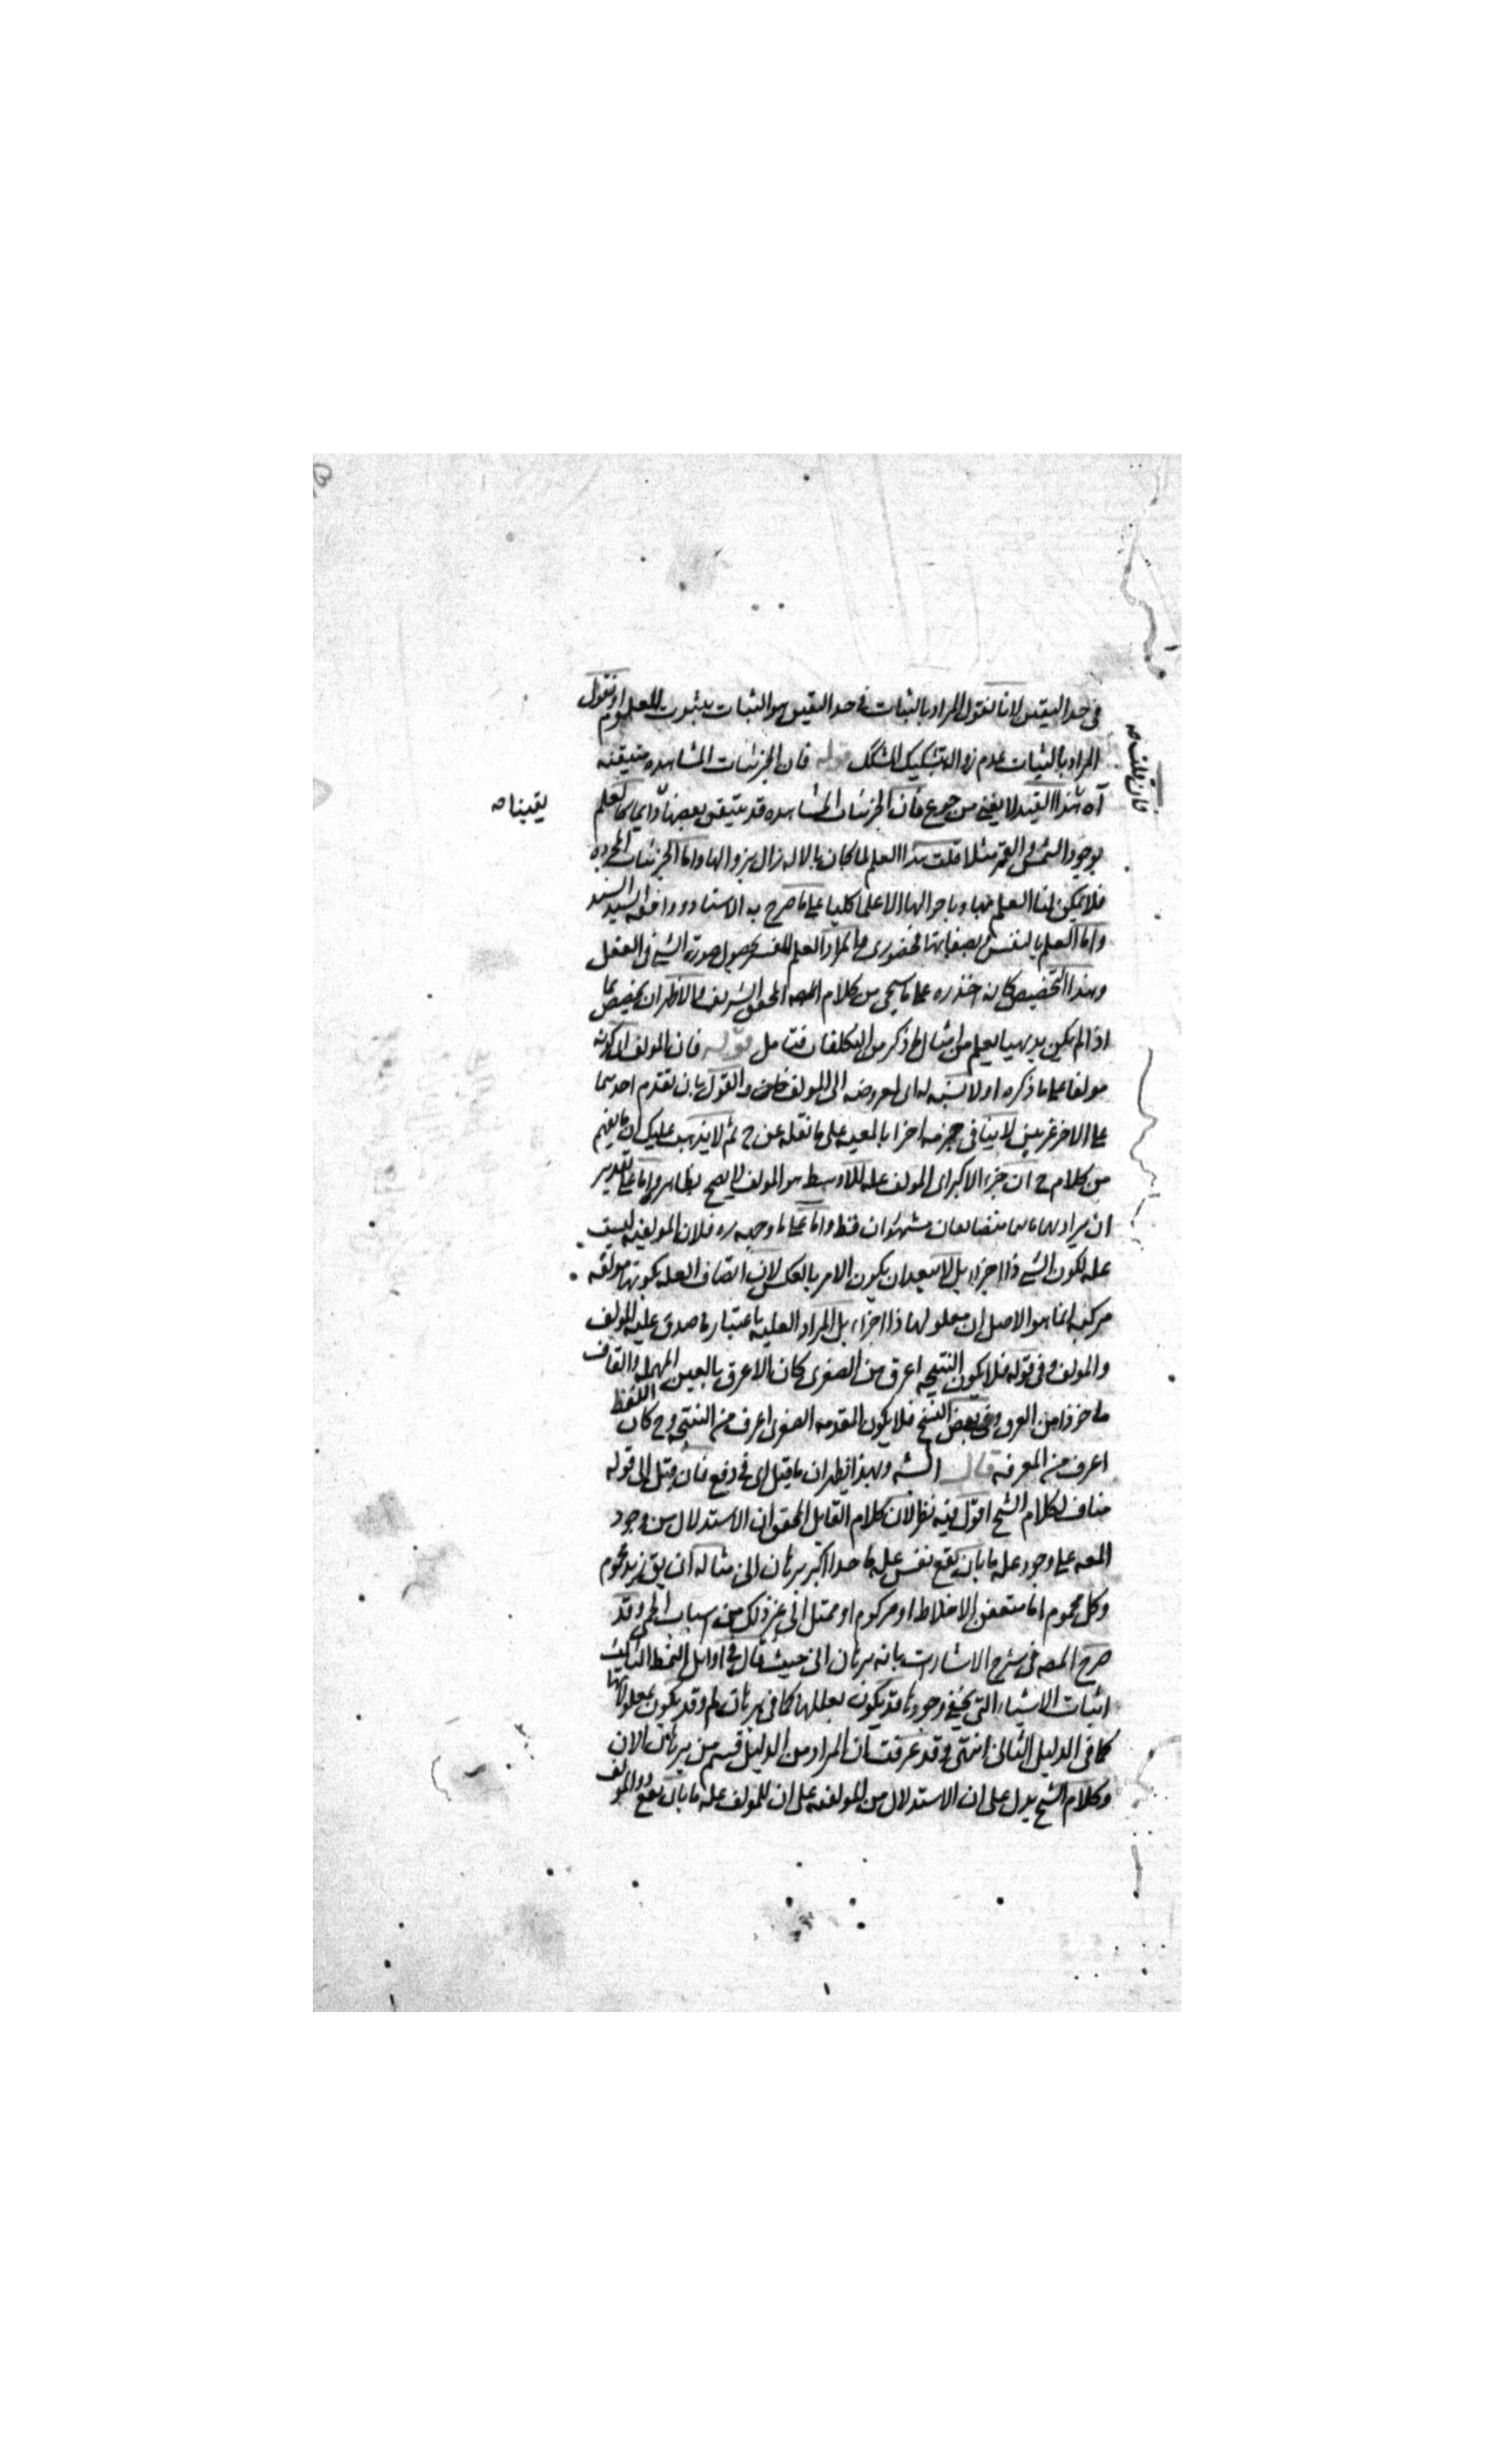 في حد اليقين لانا نقول المراد بالثبات في حد اليقين هو الثبات بثبوت المعلوم او نقول
المراد بالثبات عدم زواله بتشكيك المشكك قوله فان الجزئيات المشاهده متيقنه
آه هذا القيد لا يغني من جوع فان الجزئيات المشاهده قد يتيقن بعضها دايما كالعلم
بوجود الشمس والقمر مثلا قلت هذا العلم لما كان بالاله زال بزوالها واما الجزئيات المجرده
فلا يمكن لنا العلم بها وباحوالها الا علما كليا على ما صرح به الاستاد ووافقه السيد السند
واما العلم بالنفس وبصفاتها فحضوري والمراد العلم المفسر بحصول صورة الشي في العقل
وهذا التخصيص كانه اخذه ره مما سيجي من كلام المحقق الشريف والاظهر ان يخصص بما
اذا لم يكن بديهيا يعلم من امثال ما ذكر من التكلفات فتامل قوله فان المولف لذاته
مولفا على ما ذكره اولا نسبه له اى لمعروضه الى المولف والقول بان تقدم احدهما
على الاخر لا ينافي جزمه اخرا بالمعيه على ما نقله عن ح ثم لا يذهب عليك ان ما يفهم
من كلام ح ان جزء الاكبر اى المولف عله للاوسط هو المولف لا يصح بظاهره اما على تقدير
ان يراد بهما متضايفان مشهوران فقط واما على ما وجهه ره فلان المولفيه ليست
عله لكون الشي ذا اجزاء بل لا يبعد ان يكون الامر بالعكس لان اتصاف العله بكونها مولفه
مركبه انما هو لاصل ان معلولها ذا اجزاء بل المراد العليه باعتبار ما صدق عليه المولف
والمولف وفي قوله فلا يكون النتيجه اعرق من الصغرى كان الاعرق بالعين المهمله والقاف
ماخوذا من العرق وفي بعض النسخ فلا يكون المقدمه الصغرى اعرف من النتيجه وح كان اللفظ
اعرف من المعرفه قال الشه وبهذا يظهر ان ما قيل اى في دفع فان قيل الى قوله
مناف لكلام الشيخ اقول فيه نظر لان كلام القايل المحقق ان الاستدلال من وجود
المعه على وجود عله ما بان يقع نفس عله ما حدا اكبر برهان انى مثاله ان يق زيد محموم
وكل محموم اما متعفن الاخلاط او مزكوم او ممتل الى غير ذلك من اسباب الحمى وقد
صرح المصه في شرح الاشارات بانه برهان انى حيث قال في اوايل النمط الثالث
اثبات الاشياء التي يخفى وجودها قد يكون بعللها كما في برهان لم وقد يكون بمعلولاتها
كما في الدليل الثانى انتهى وقد عرفت ان المراد من الدليل قسم من برهان الان
وكلام الشيخ يدل على ان الاستدلال من المولفيه على ان للمولف عله ما بان يقع ذو المولف
فان قلت صه
يقينا صه